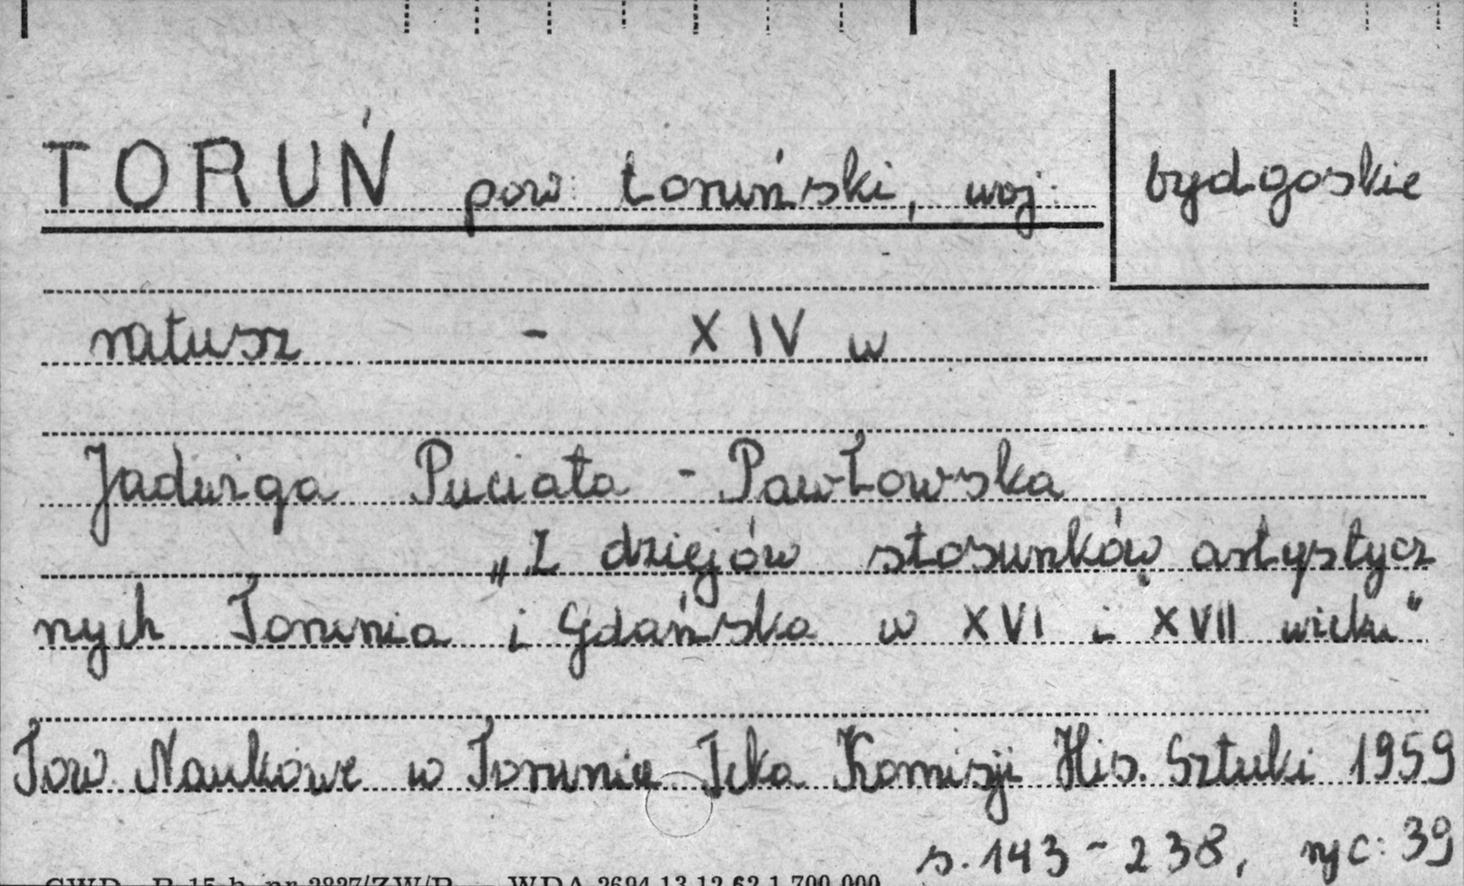 TORUŃ pow: toruński, woj: bydgoskie
ratusz - XIV w
Jadwiga Puciata - Pawłowska
„Z dziejów stosunków artystycz
nych Torunia i Gdańska w XVI i XVII wieku“
Tow. Naukowe w Toruniu Teka Komisji His. Sztuki 1959
s. 143 - 238, ryc: 39